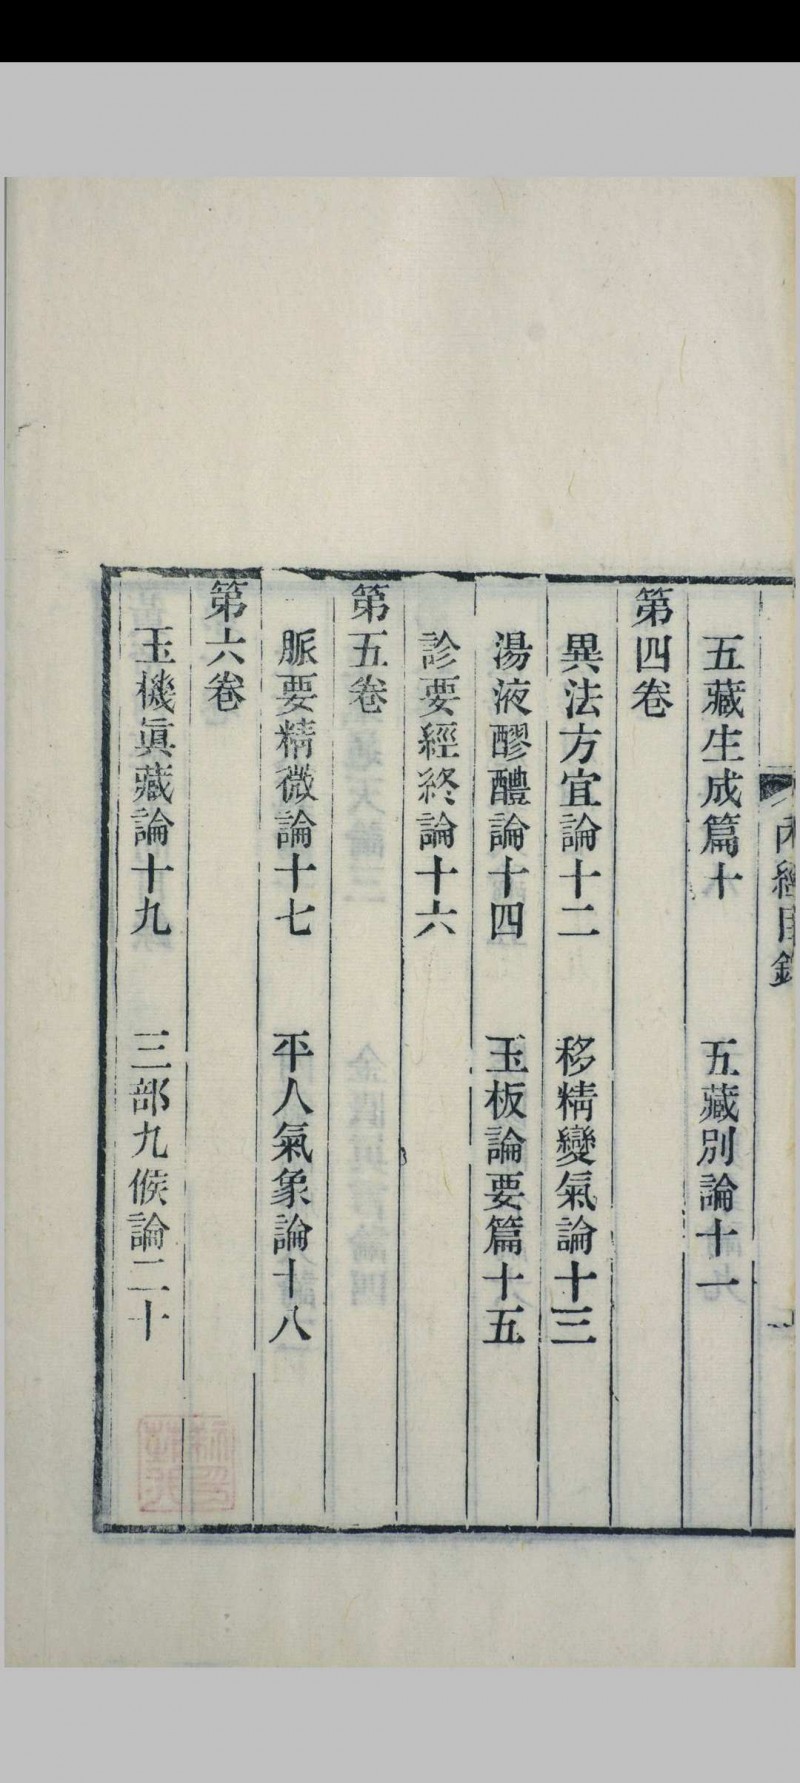 內經目錄
一
五藏生成篇十　五藏別論十一
第四卷
異法方宜論十二　移精變氣論十三
湯液醪醴論十四　玉板論要篇十五
診要經終論十六
第五卷
脈要精微論十七　平人氣象論十八
第六卷
玉機眞藏論十九　三部九候論二十